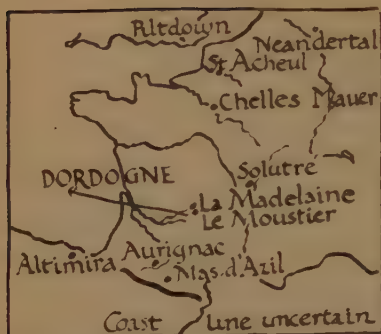 Piltdown
Neandertal
St Acheul
Chelles Mauer
Solutré
DORDOGNE
La Madelaine
Le Moustier
Aurignac
Altimira
Mas. d'Azil
Coast line uncertain